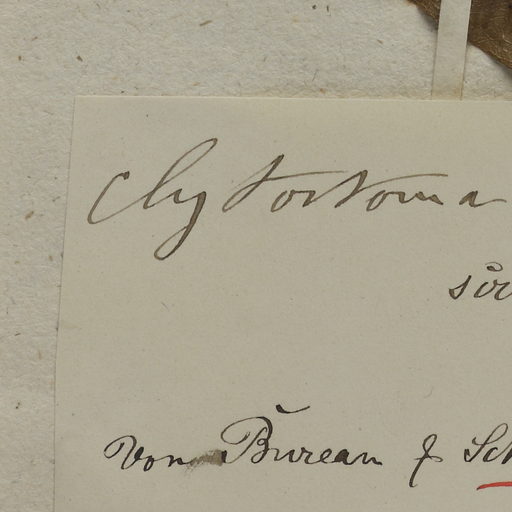 Clytostoma
von Bureau & Sch